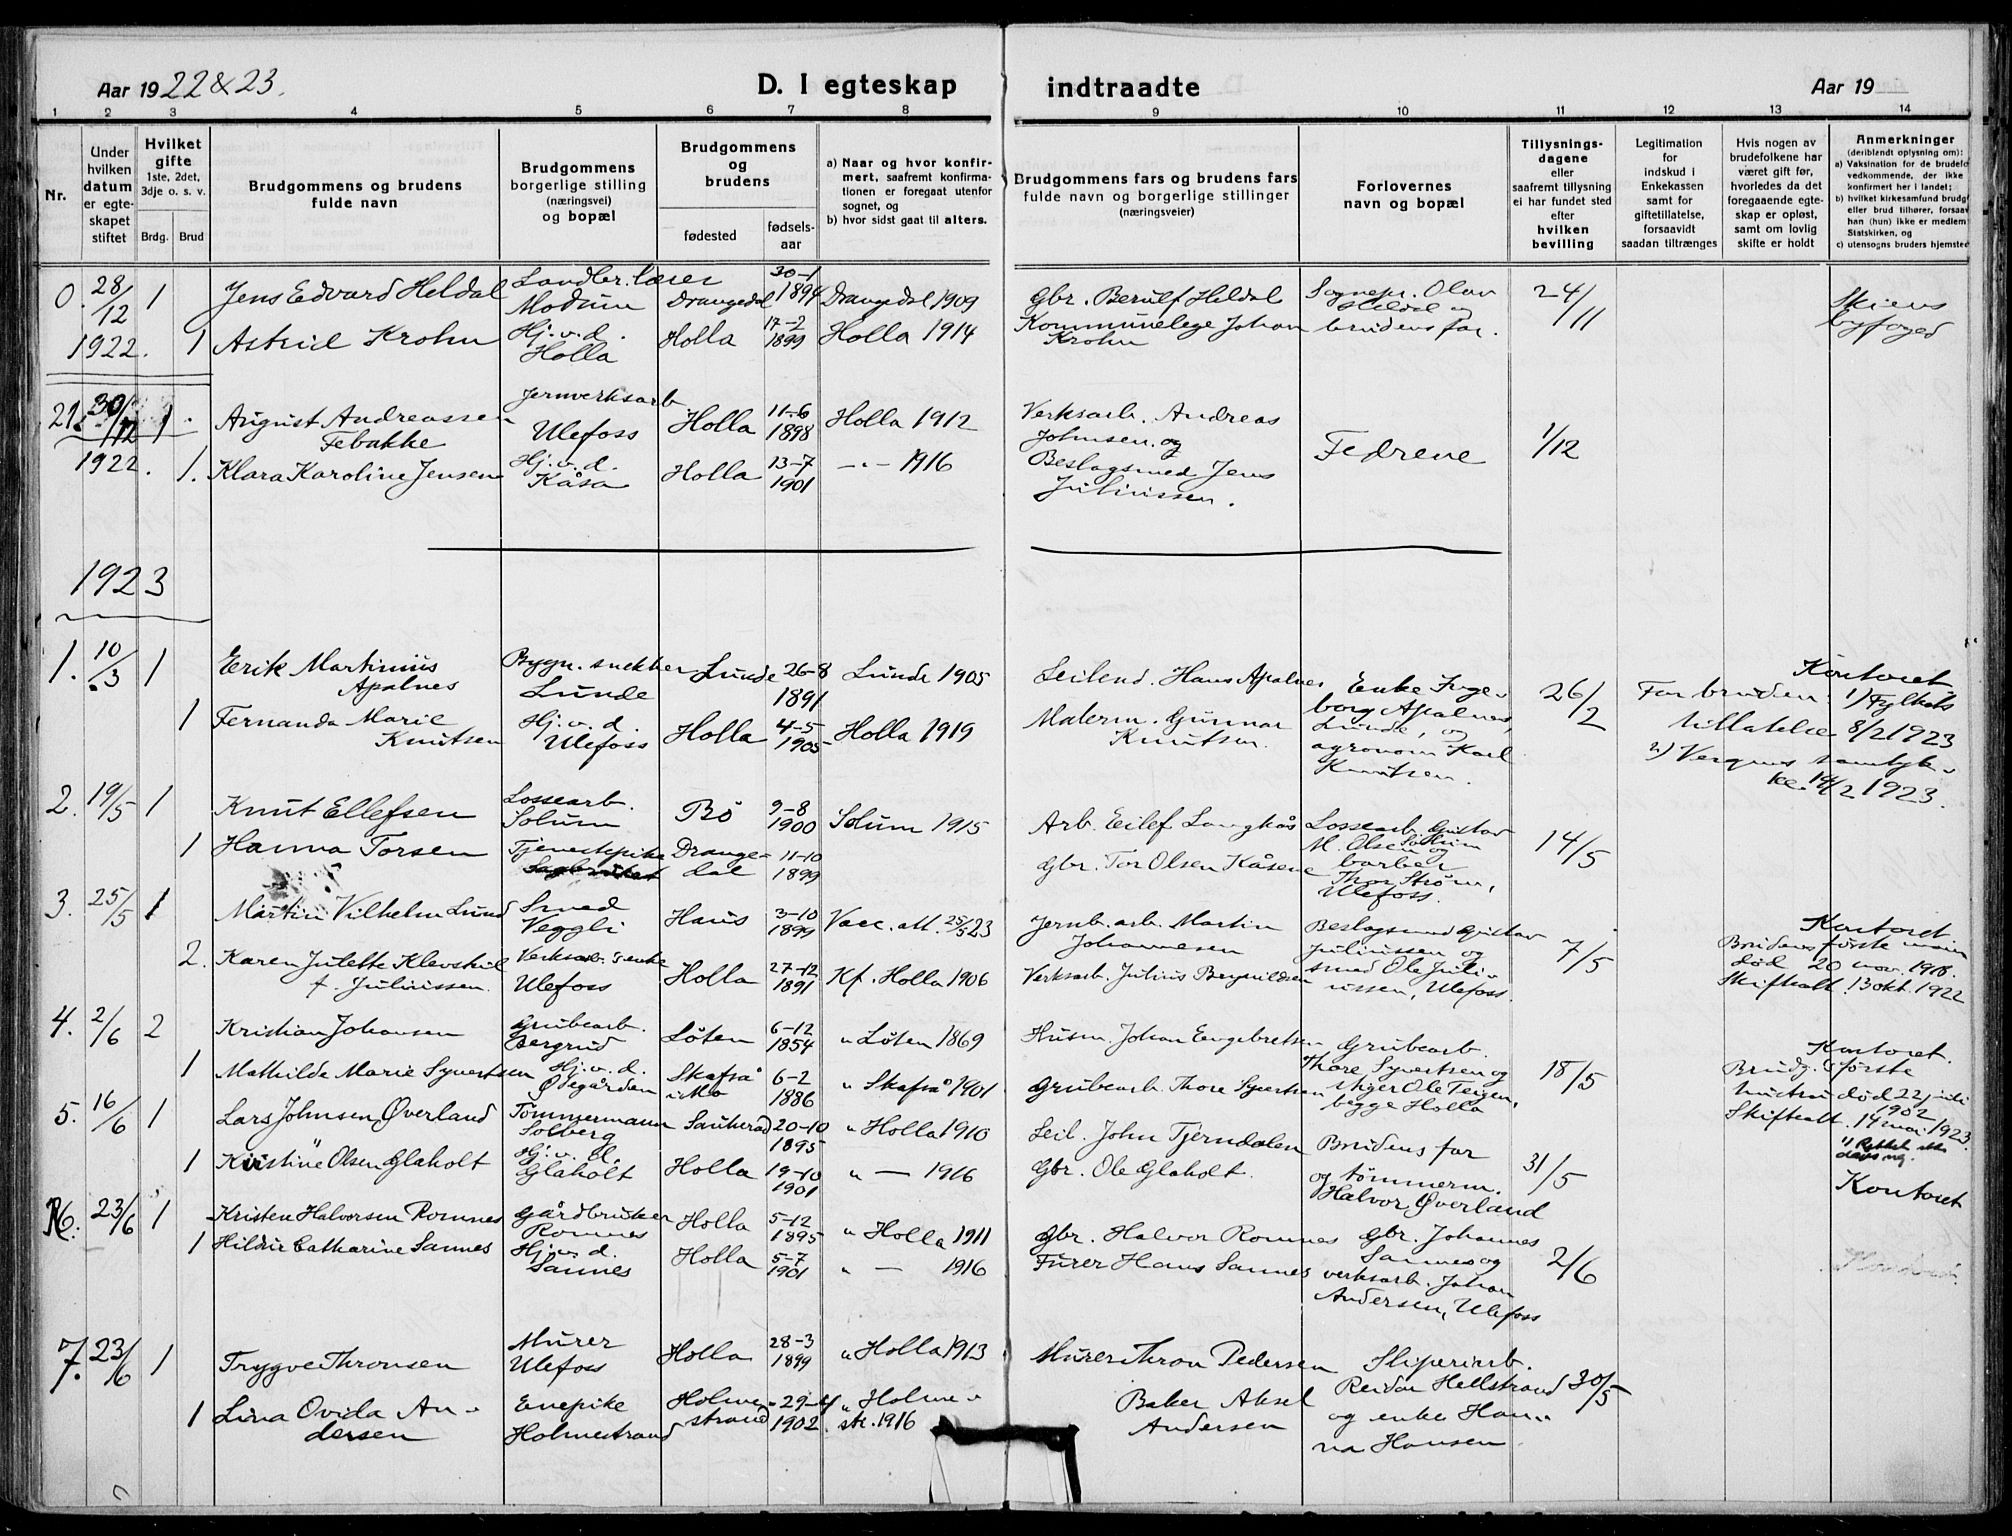 Aar 1922 & 23.
D. I egteskap indtraadte
Aar 19
1 2 3 4 5 6 7 8 9 10 11 12 13 14
Nr.
Under hvilken datum er egteskapet stiftet
Hvilket gifte 1ste, 2det, 3dje o. s. v.
Brdg. Brud
Brudgommens og brudens fulde navn
Brudgommens borgerlige stilling (næringsvei) og bopæl
Brudgommens og brudens
fødested
fødselsaar
a) Naar og hvor konfirmert, saafremt konfirmationen er foregaat utenfor sognet, og
b) hvor sidst gaat til alters.
Brudgommens fars og brudens fars fulde navn og borgerlige stillinger (næringsveier)
Forlovernes navn og bopæl
Tillysningsdagene eller saafremt tillysning ei har fundet sted efter hvilken bevilling
Legitimation for indskud i Enkekassen samt for giftetillatelse, forsaavidt saadan tiltrænges
Hvis nogen av brudefolkene har været gift før, hvorledes da det foregaaende egteskap er opløst, samt om lovlig skifte er holdt
Anmerkninger
(deriblandt oplysning om):
a) Vaksination for de brudefo
vedkommende, der ikke
konfirmert her i landet;
b) hvilket kirkesamfund brudg
eller brud tilhører, forsaav
han (hun) ikke er medlem
Statskirken, og
c) utensogns bruders hjemsted
0 28/12 1922. 1 Jens Edvard Heldal Landbr. lærer Modum Drangedal 30-1 1894 Drangedal 1909 Gbr. Berulf Heldal Sognepr. Olav Heldal og brudens far. 24/11 Skiens byfoged
1 Astrid Krohn Hj. v. d. Holla Holla 17-2 1899 Holla 1914 Kommunelege Johan Krohn
21. 30/12 1922. 1 August Andreassen Febakke Jernverksarb Ulefoss Holla 11-6 1898 Holla 1912 Verksarb. Andreas Johnsen og Fedrene 1/12
1. Klara Karoline Jensen Hj. v. d. Kåsa Holla 13-7 1901 -"- 1916 Beslagsmed Jens Juliussen.
1923
1. 10/3 1 Erik Martinius Apalnes Bygn. snekker Lunde Lunde 26-8 1891 Lunde 1905 Leilend. Hans Apalnes Enke Ingeborg Apalnes, Lunde, og agronom Karl Knutsen. 26/2 For bruden: 1) Fylkets tillatelse 8/2 1923 2) Verges samtykke 14/2 1923. Kontoret
1 Fernanda Marie Knutsen Hj. v. d. Ulefoss Holla 4-5 1905 Holla 1919 Malerm. Gunnar Knutsen.
2. 19/5 1 Knut Ellefsen Lossearb. Solum Bø 9-8 1900 Solum 1915 Arb. Eilef Langkås Lossearb. Gustav M. Olsen Solum og barber Thor Strøm, Ulefoss. 14/5
1 Hanna Torsen Tjenestepike Drangedal 11-10 1899 Gbr. Tor Olsen Kåsene
3. 25/5 1 Martin Vilhelm Lund Smed Veggli Haus 3-10 1899 Vacc. att. 25/5 23 Jernb. arb. Martin Johannesen Beslagsmed Gustav Juliussen og smed Ole Juliussen, Ulefoss. 7/5 Kontoret Brudens første mann død 20 nov. 1918. Skifteatt. 13 okt. 1922
2. Karen Julette Klevskil f. Juliussen. Verksarb. enke Ulefoss Holla 27-12 1891 Kf. Holla 1906 Verksarb. Julius Bergulldsen
4. 2/6 2 Kristian Johansen Grubearb. Bergrud Løten 6-12 1854 " Løten 1869 Husm. Johan Engebretsen Grubearb. Thore Syvertsen og stiger Ole Teigen, begge Holla 18/5 Kontoret. Brudg. første hustru død 22 juli 1902 Skifteatt. 14 mai 1923.
1 Mathilde Marie Syvertsen Hj. v. d. Ødegården Skafså 6-2 1886 " Skafså 1901 Grubearb. Thore Syvertsen
5. 16/6 1 Lars Johnsen Øverland Tømmermann Solberg Sauherad 20-10 1895 " Holla 1910 Leil. John Tjerndalen Brudens far og tømmerm. Halvor Øverland 31/5 Kontoret
1 Kristine Olsen Glaholt Hj. v. d. Glaholt Holla 19-10 1901 " — 1916 Gbr. Ole Glaholt.
6. 23/6 1 Kristen Halvorsen Romnes Gårdbruker Romnes Holla 5-12 1895 " Holla 1911 Gbr. Halvor Romnes Gbr. Johannes Sannes og verksarb. Johan Andersen, Ulefoss 2/6
1 Hildur Catharine Sannes Hj. v. d. Sannes Holla 5-7 1901 " — 1916 Furer Hans Sannes
7. 23/6 1 Trygve Thronsen Murer Ulefoss Holla 28-3 1899 " Holla 1913 Murer Thron Pedersen Sliperiarb. Reidar Hellstrand og enke Hanna Hansen. 30/5
1 Lina Ovida Andersen Enepike Holmestrand Holmestrand 29-4 1902. " Holmestr. 1916 Baker Aksel Andersen